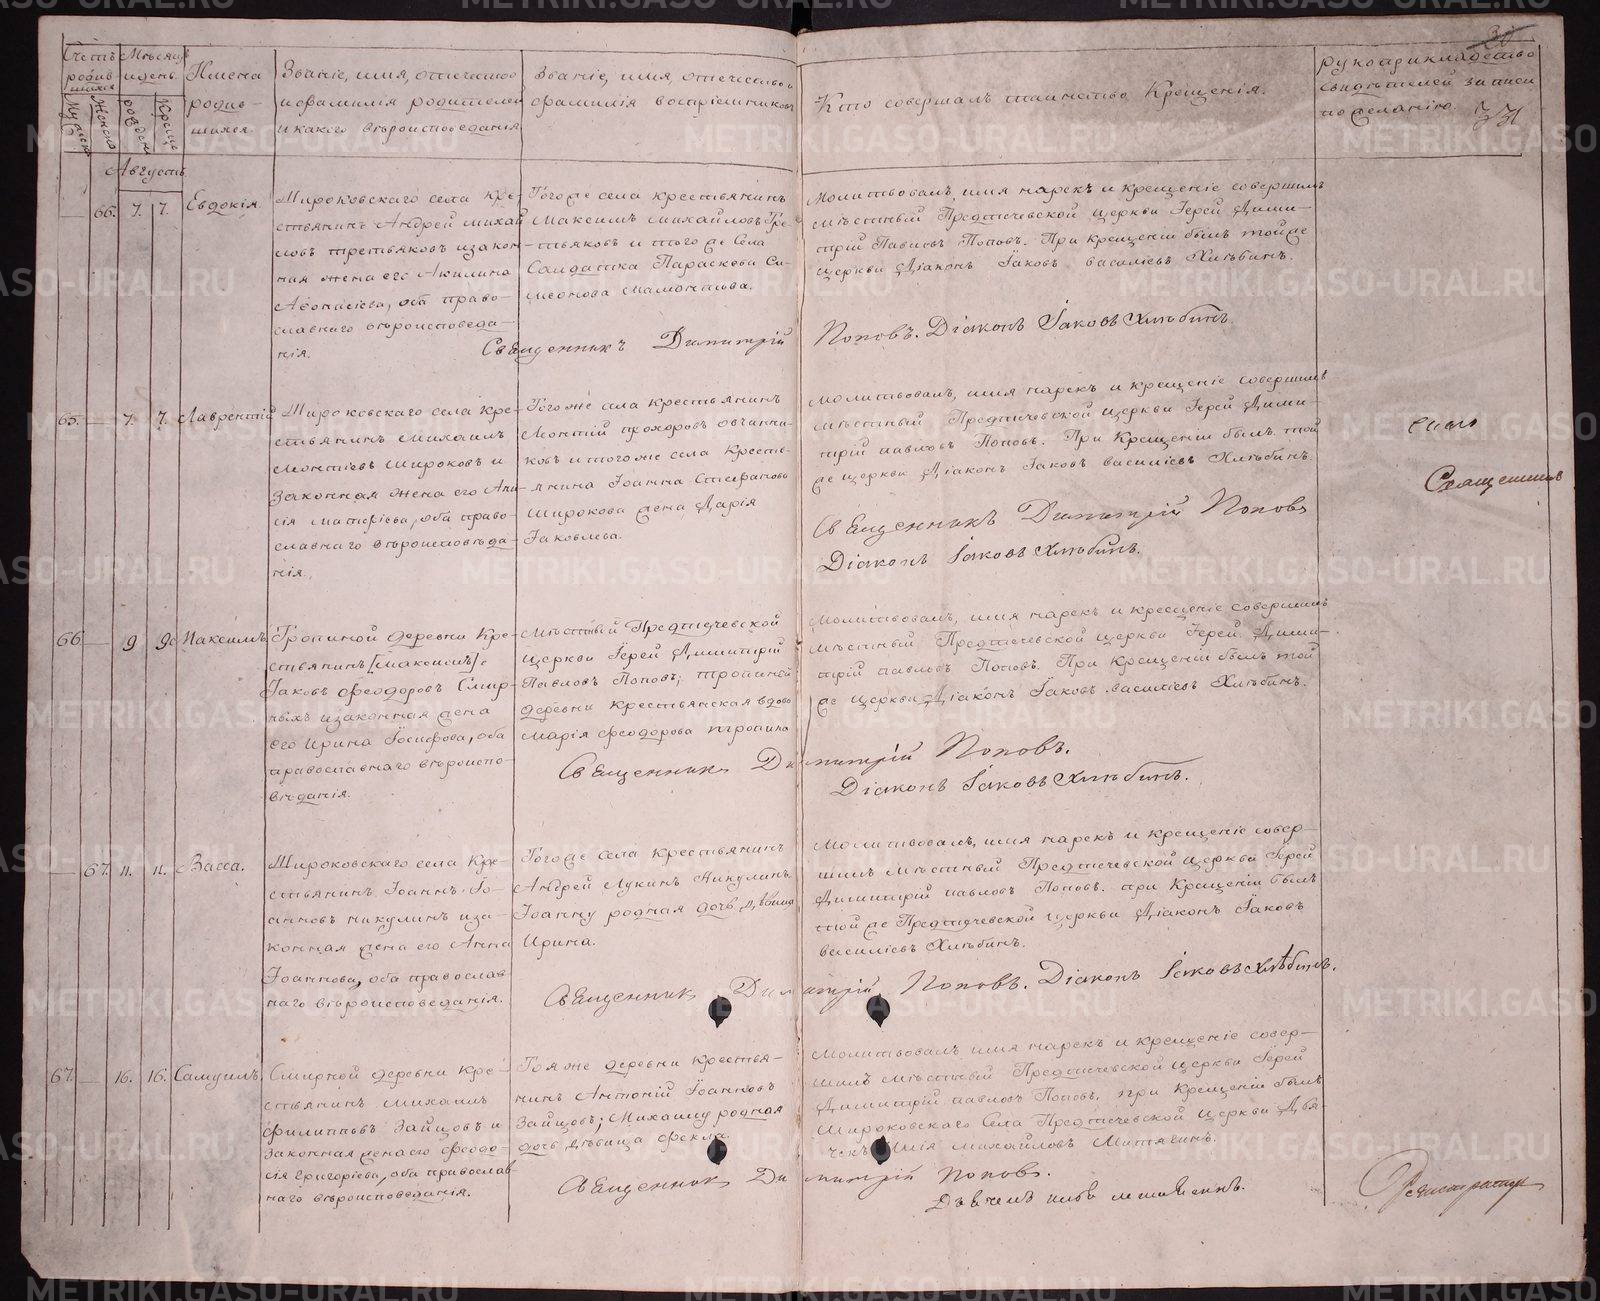 Счетъ родив-шихся
Мужеск
Женска
Мѣсяцъ и день
рожден
Крещ
Имена родив-шихся
Званіе, имя, отчество
и фамилія родителей
и какого вѣроисповеданія
Званіе, имя, отчество и
фамилія воспріемниковъ
Кто совершалъ таинство Крещенія.
рукоприкладство
свидѣтелей записи
по желанію.
Августъ
66. 7. 7. Евдокія.
Широковскаго села Кре-
стьянинъ Андрей Михай
ловъ третьяковъ и закон-
ная жена его Акилина
Аѳонасіева, оба право-
славнаго вѣроисповеда-
нія.
Тогоже села крестьянинъ
Максимъ Михайловъ Тре-
тьяковъ и того же Села
Салдатка Параскова Си-
меонова Мамонтова.
Молитвовалъ, имя нарекъ и крещеніе совершилъ
мѣстный Предтечевской церкви Іерей Дими-
трій Павловъ Поповъ. При крещеніи былъ тойже
церкви Діаконъ Іаковъ василіевъ Хлѣбинъ.
Священникъ Димитрій Поповъ. Діаконъ Іаковъ Хлѣбинъ.
65. — 7. 7. Лаврентій
Широковскаго села Кре-
стьянинъ Михаилъ
Леонтіевъ Широковъ и
Законная жена его
оба право-
славнаго вѣроисповѣда-
нія.
Тогоже села крестьянинъ
Леонтій прохоровъ овчинни-
ковъ и тогоже села Кресть-
янина Іоанна Стефанова
Широкова жена Дарія
Іаковлева.
Молитвовалъ, имя нарекъ и крещеніе совершилъ
мѣстный Предтечевской церкви Іерей Дими-
трій павловъ Поповъ. При Крещеніи былъ той
же церкви Діаконъ Іаковъ василіевъ Хлѣбинъ.
Священникъ Димитрій Поповъ
Діаконъ Іаковъ Хлѣбинъ.
Священников
66 — 9 9 Максимъ
Тропиной деревни Кре-
стьянинъ [Максимъ]
Іаковъ Феодоровъ Смир-
ныхъ и законная жена
его Ирина Іосифова, оба
православнаго вѣроиспо-
вѣданія.
Мѣстный Предтечевской
церкви Іерей Димитрій
Павловъ Поповъ; тропиной
деревни Крестьянская вдова
Марія Феодорова тропина
Молитвовалъ, имя нарекъ и крещеніе совершилъ
мѣстный Предтечевской церкви Іерей Дими-
трій павловъ Поповъ. При Крещеніи былъ той
же церкви Діаконъ Іаковъ василіевъ Хлѣбинъ.
Священникъ Димитрій Поповъ.
Діаконъ Іаковъ Хлѣбинъ.
— 67. 11. 11. Васса.
Широковскаго села Кре-
стьянинъ Іоаннъ Іо-
анновъ никулинъ и за-
конная жена его Анна
Іоаннова, оба православ-
наго вѣроисповеданія.
Тогоже села Крестьянинъ
Андрей Лукинъ Никулинъ.
Іоанну родная дочь дѣвица
Ирина.
Молитвовалъ, имя нарекъ и крещеніе совер-
шилъ мѣстный Предтечевской церкви Іерей
Димитрій павловъ Поповъ. при Крещеніи былъ
той же Предтечевской церкви Діаконъ Іаковъ
василіевъ Хлѣбинъ.
Священникъ Димитрій Поповъ. Діаконъ Іаковъ Хлѣбинъ.
67. — 16. 16. Самуилъ,
Смирной деревни Кре-
стьянинъ Михаилъ
Филипповъ Зайцовъ и
Законная жена его Феодо-
сія Григоріева, оба православ-
наго вѣроисповеданія.
Тояже деревни крестья-
нинъ Антоній Іоанновъ
Зайцовъ; Михаилу родная
дочь дѣвица Фекла
Молитвовалъ, имя нарекъ и крещеніе совер-
шилъ мѣстный Предтечевской церкви Іерей
Димитрій павловъ Поповъ. при Крещеніи былъ
Широковскаго Села Предтечевской церкви Дья-
чекъ Илія михайловъ Митягинъ.
Священникъ Димитрій Поповъ.
Регистраторъ
METRIKI.GASO-URAL.RU